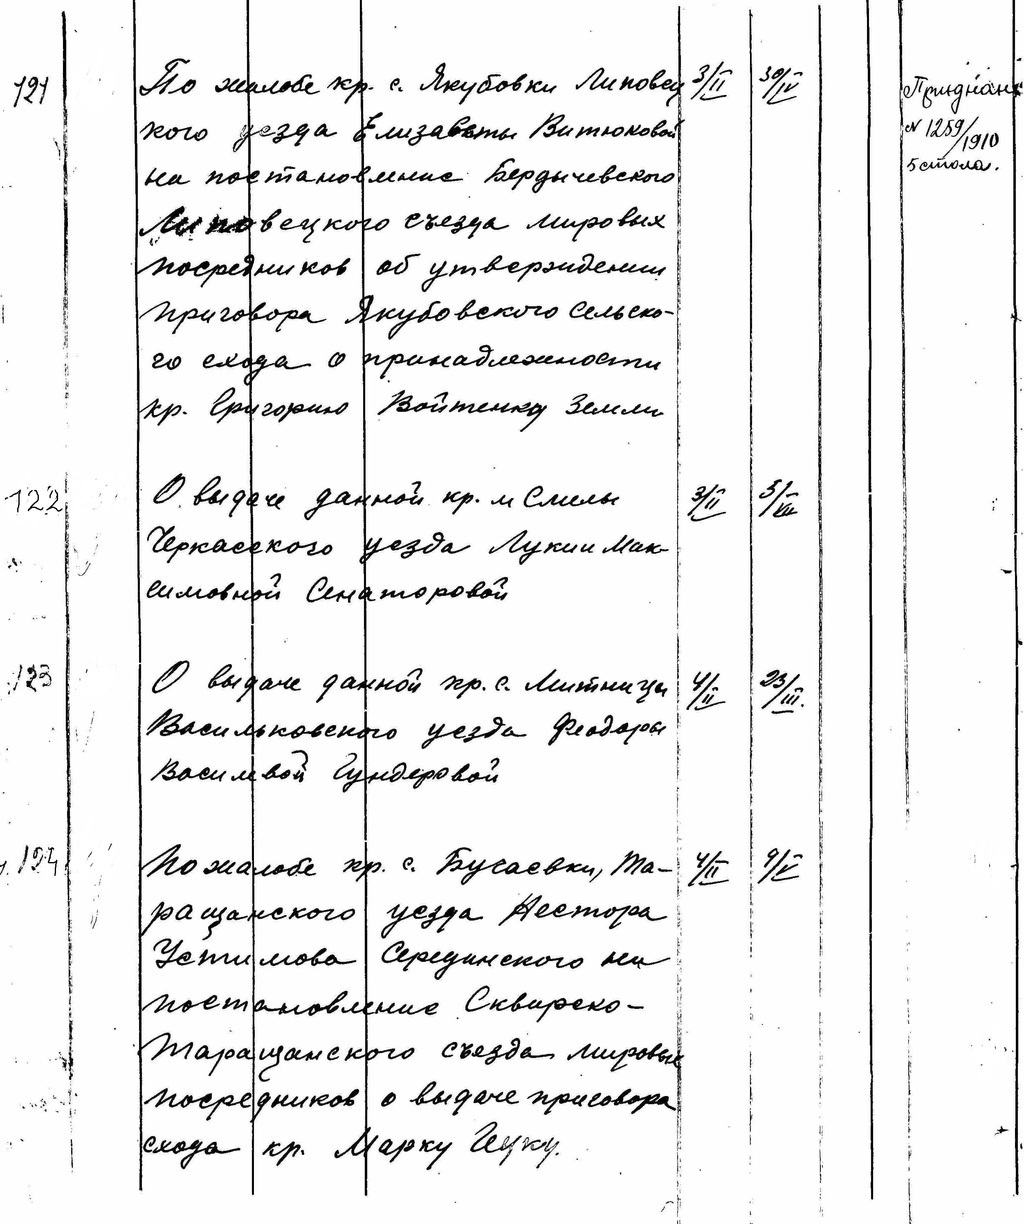 121 По жалобе кр. с. Якубовки Липовец 3/II 30/IV Приднан
кого уезда Елизаветы Витюковой N 1259/1910
на постановление Бердычевского 5 стола.
Липовецкого съезда мировых
посредников об утверждении
приговора Якубовского Сельско-
го схода о принадлежности
кр. Григорию Войтенку Земли
122 О выдаче данной кр. м Смелы 3/II 5/VII
Черкасского уезда Лукии Мак-
симовной Сенаторовой
123 О выдаче данной кр. с. Митницы 4/II 23/III.
Васильковского уезда Феодоры
Василвой Гундеровой
124 По жалобе кр. с. Бугаевки, Та- 4/II 9/V
ращанского уезда Нестора
Устимова Серединского на
постановление Сквирско-
Таращанского съезда мировых
посредников о выдаче приговора
схода кр. Марку